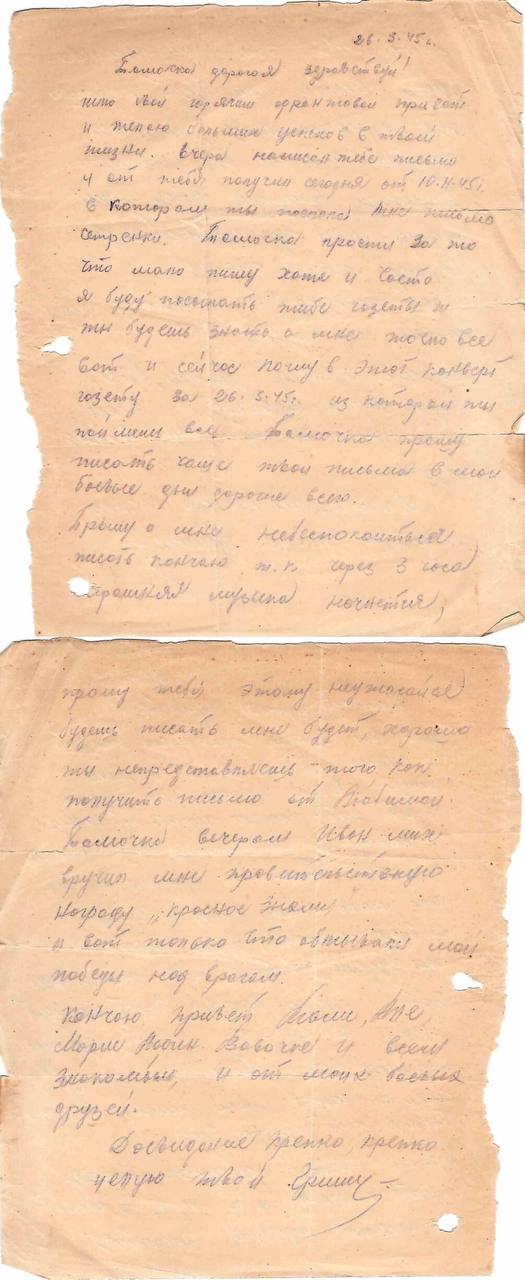 26.3.45 г.
Тамочка дорогая здравствуй!
шлю свой горячий фронтовой привет
и желаю больших успехов в твоей
жизни. Вчера написал тебе письмо
и от тебя получил сегодня от 10.II.45 г.
в котором ты послала мне письмо
сестренки. Тамочка прости за то
что мало пишу хотя и часто
я буду посылать тебе газеты и
ты будешь знать о мне точно все
вот и сейчас пошлю в этот конверт
газету за 26.3.45 г. из которой ты
поймешь все. Тамочка прошу
писать чаще твои письма в мои
боевые дни дороже всего.
Прошу о мне небеспокоиться
писать кончаю т.к. через 3 часа
страшная музыка начнется,
прошу тебя этому неужасайся
будешь писать мне будет хорошо
ты непредставляешь того как
получить письмо от Любимой.
Тамочка вечером Иван Мих
вручил мне правительственную
награду „красное знамя"
и вот только что обмывали мои
победы над врагом.
Кончаю привет
Вовочке и всем
знакомым, и от моих боевых
друзей.
Досвидание крепко, крепко
целую твой